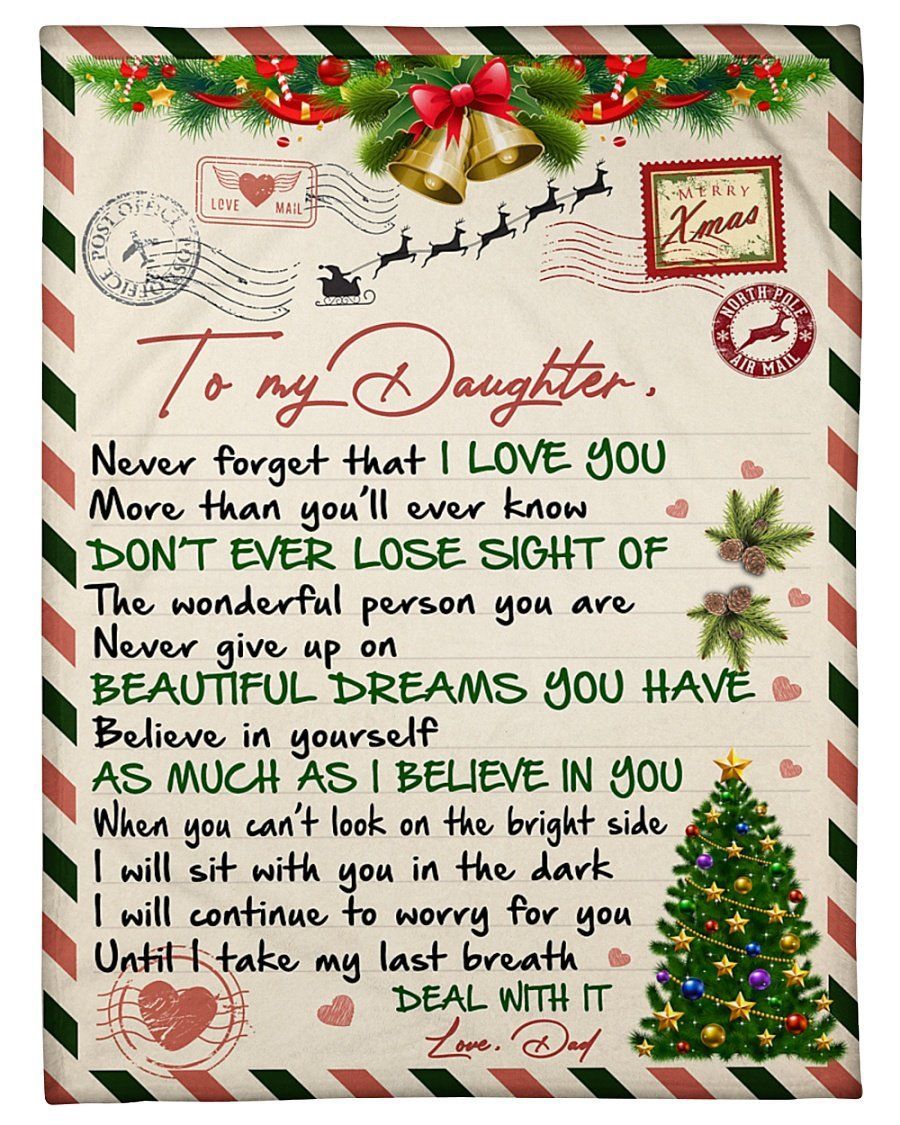 LOVE MAIL
POST OFFICE
POST OFFICE
MERRY
Xmas
NORTH POLE
AIR MAIL
To my Daughter,
Never forget that I LOVE YOU
More than you'll ever know
DON'T EVER LOSE SIGHT OF
The wonderful person you are
Never give up on
BEAUTIFUL DREAMS YOU HAVE
Believe in yourself
AS MUCH AS I BELIEVE IN YOU
When you can't look on the bright side
I will sit with you in the dark
I will continue to worry for you
Until I take my last breath
DEAL WITH IT
Love, Dad